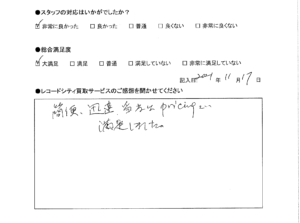 ●スタッフの対応はいかがでしたか?
☑ 非常に良かった □ 良かった □ 普通 □ 良くない □ 非常に良くない
●総合満足度
☑ 大満足 □ 満足 □ 普通 □ 満足していない □ 非常に満足していない
記入日 2021 年 11 月 17 日
●レコードシティ買取サービスのご感想を聞かせてください
簡便、迅速 pricing
満足しました。